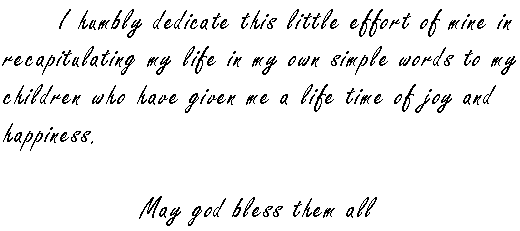 I humbly dedicate this little effort of mine in
recapitulating my life in my own simple words to my
children who have given me a life time of joy and
happiness.
May god bless them all